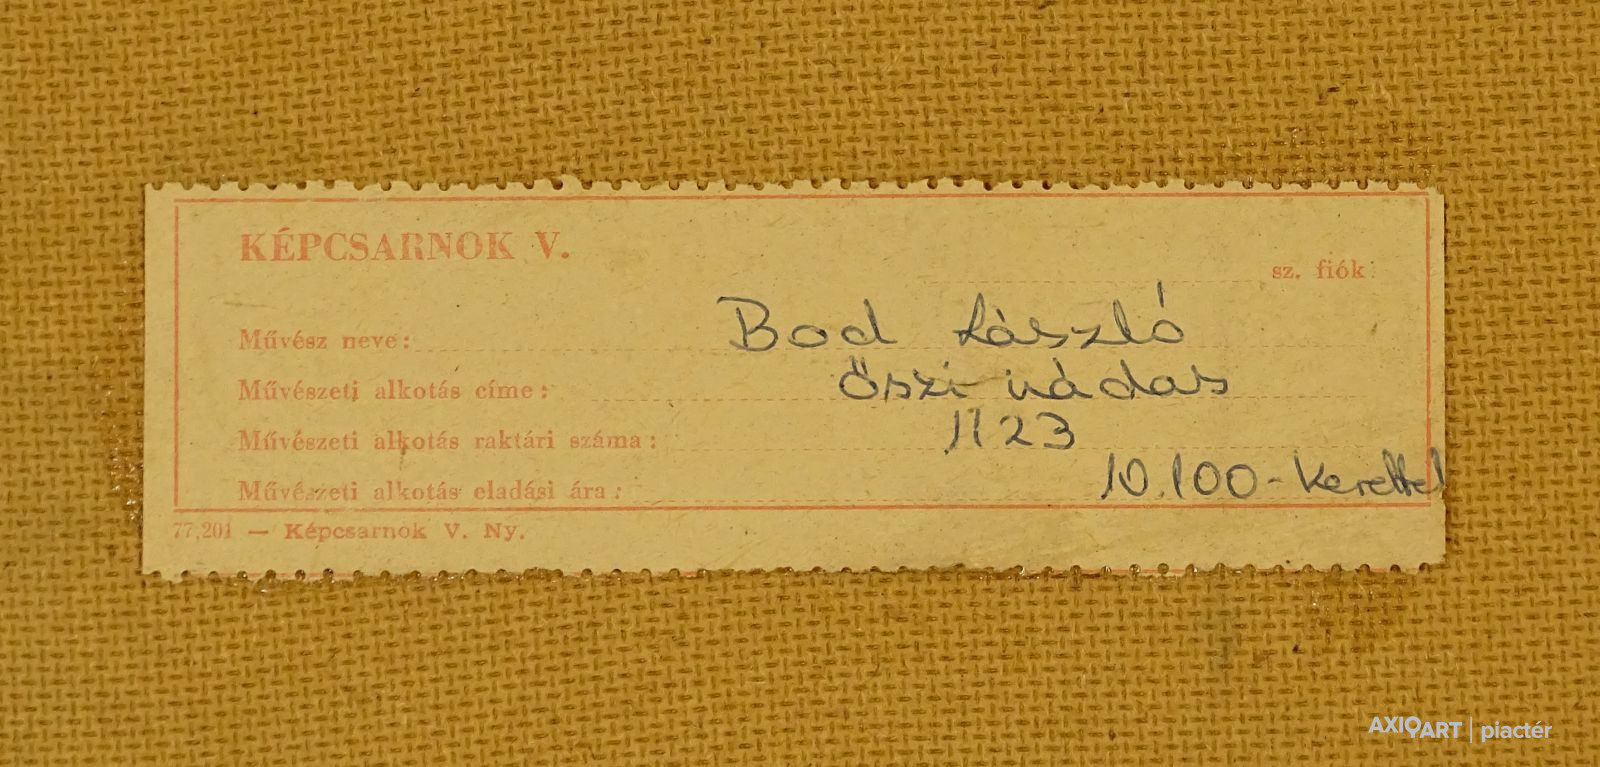 KÉPCSARNOK V.
sz. fiók
Művész neve: Bod László
Művészeti alkotás címe: Őszi nádas
Művészeti alkotás raktári száma: 1123
Művészeti alkotás eladási ára: 10.100- kerettel
77,201 — Képcsarnok V. Ny.
AXIOART | piactér